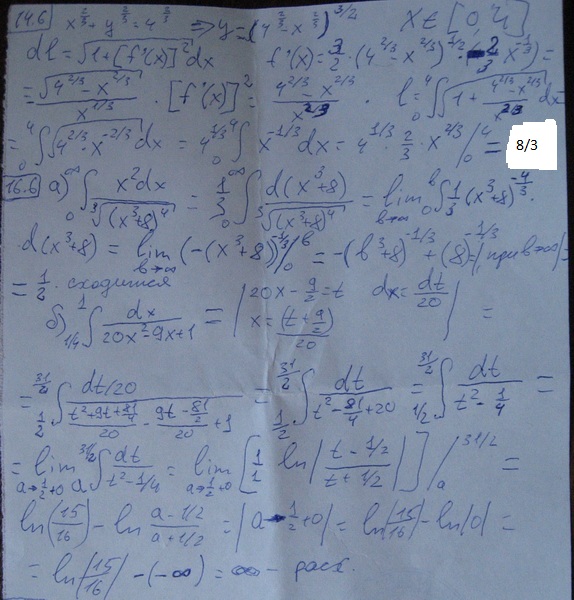 14.6 x^{2/3} + y^{2/3} = 4^{2/3} ⇒ y = (4^{2/3} - x^{2/3})^{3/2} x ∈ [0,4]
dl = √(1+[f'(x)]^2) dx f'(x) = 3/2 · (4^{2/3} - x^{2/3})^{1/2} · (-2/3 x^{-1/3}) =
= √(4^{2/3} - x^{2/3}) / x^{1/3} · [f'(x)]^2 = (4^{2/3} - x^{2/3}) / x^{2/3} · l = ₀∫⁴ √(1 + (4^{2/3} - x^{2/3}) / x^{2/3}) dx =
= ₀∫⁴ √(4^{2/3} · x^{-2/3}) dx = 4^{1/3} ₀∫⁴ x^{-1/3} dx = 4^{1/3} · 2/3 · x^{2/3} /₀⁴ = 8/3
16.6 а) ₀∫^∞ x^2 dx / ∛((x^3+8)^4) = 1/3 ₀∫^∞ d(x^3+8) / ∛((x^3+8)^4) = lim_{b→∞} ₀∫^b 1/3 (x^3+8)^{-4/3} ·
· d(x^3+8) = lim_{b→∞} (-(x^3+8)^{-1/3}) /₀^b = -(b^3+8)^{-1/3} + (8)^{-1/3} = |при b→∞| =
= 1/2 · сходится
б) _{1/4}∫^1 dx / (20x^2-9x+1) = | 20x - 9/2 = t dx = dt/20
x = (t + 9/2) / 20 | =
= _{1/2}∫^{31/2} (dt/20) / ((t^2+9t+81/4)/20 - (9t-81/2)/20 + 1) = _{1/2}∫^{31/2} dt / (t^2 - 81/4 + 20) = _{1/2}∫^{31/2} dt / (t^2 - 1/4) =
= lim_{a→1/2+0} _a∫^{31/2} dt / (t^2-1/4) = lim_{a→1/2+0} [1/1 ln|(t-1/2)/(t+1/2)|] /_a^{31/2} =
ln(15/16) - ln (a-1/2)/(a+1/2) = |a→1/2+0| = ln|15/16| - ln|0| =
= ln|15/16| - (-∞) = ∞ - расх.